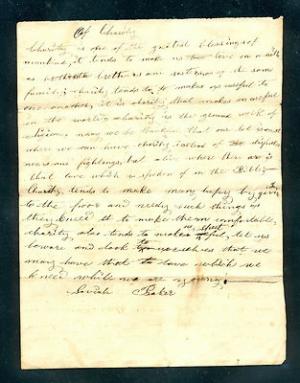 Of Charity
Charity is one of the greatest blessings of
mankind, it tends to make us love one an
as brothers and sisters of the same
family; charity tends to make us useful to
one another, it is charity that makes us useful
in the world charity is the ground work of
may we be thankful that our lot
where we can have charity instead of the
wars and fightings, but alive where there is
that love which is spoken of in the Bible
Charity tends to make many happy by giving
to the poor and needy such things as
they need it to make them comfortable,
charity also tends to make us useful, let us
beware and look to yourselves that we
may have that love which we
need while we are young.
Baker